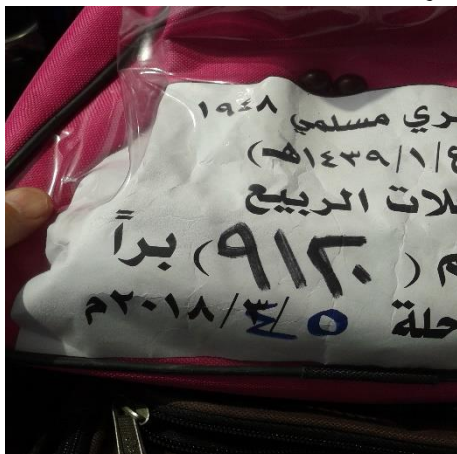 ري مسلمي ١٩٤٨
٤/١/١٤٣٩هـ)
لات الربيع
م (٩١٢) براً
حلة ٥/٤/٢٠١٨م